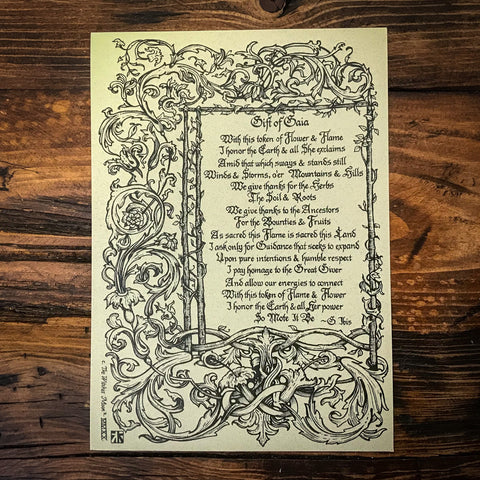 Gift of Gaia
With this token of Flower & Flame
I honor the Earth & all She exclaims
Amid that which sways & stands still
Winds & Storms, o'er Mountains & Hills
We give thanks for the Herbs
The Soil & Roots
We give thanks to the Ancestors
For the Bounties & Fruits
As sacred this Flame is sacred this Land
I ask only for Guidance that seeks to expand
Upon pure intentions & humble respect
I pay homage to the Great Giver
And allow our energies to connect
With this token of Flame & Flower
I honor the Earth & all Her power
So Mote It Be
~G. Ibis
The Witches